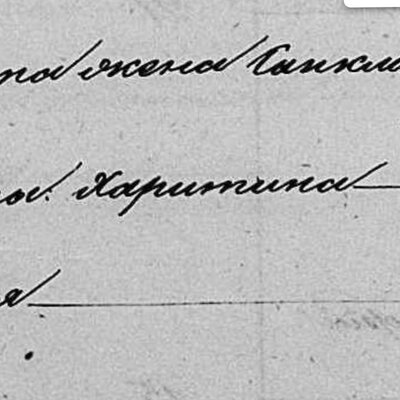 та жена Санкл
ы. Харитина
я